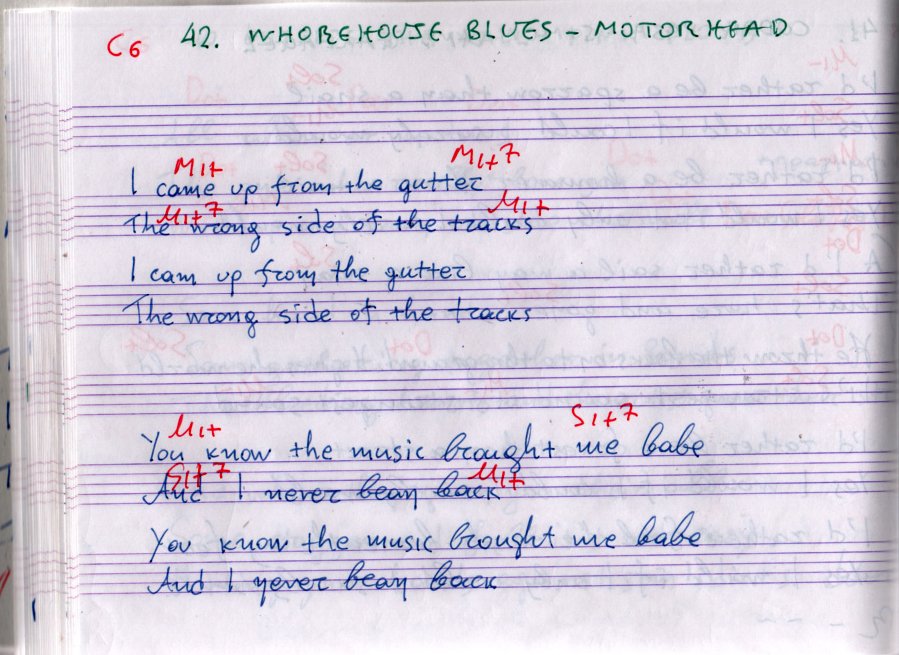 C6 42. WHOREHOUSE BLUES - MOTORHEAD
Mi+ Mi+7
I came up from the gutter
Mi+7 Mi+
The wrong side of the tracks
I cam up from the gutter
The wrong side of the tracks
Mi+ Si+7
You know the music brought me babe
Si+7 Mi+
And I never bean back
You know the music brought me babe
And I never bean back